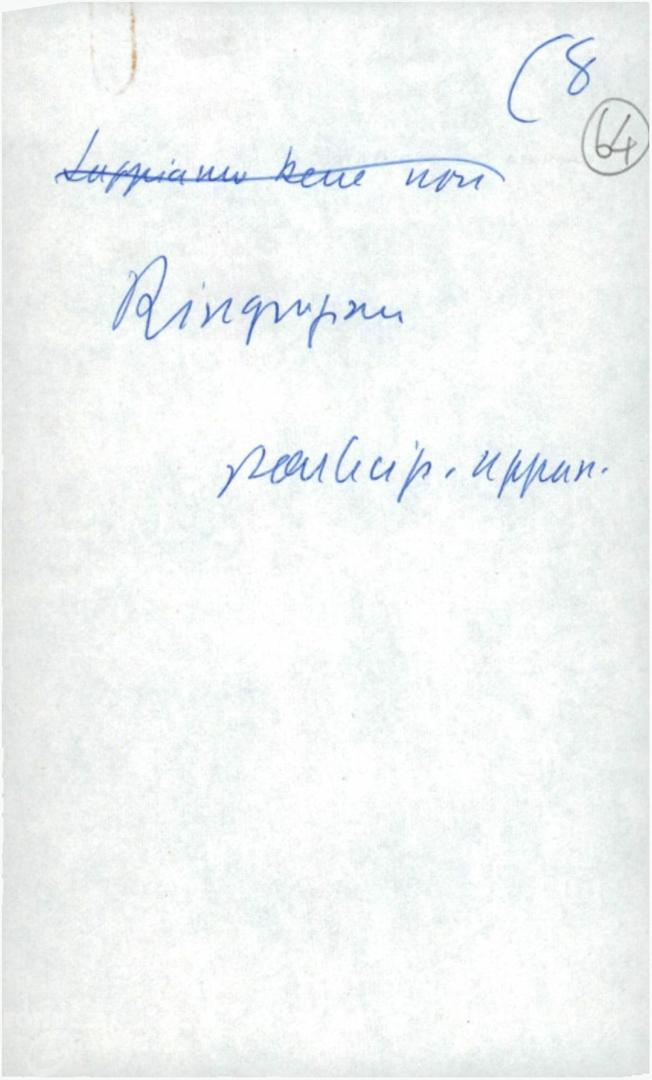 (8
64
Sappiamo bene noi
Ringraziam
particip. appan.